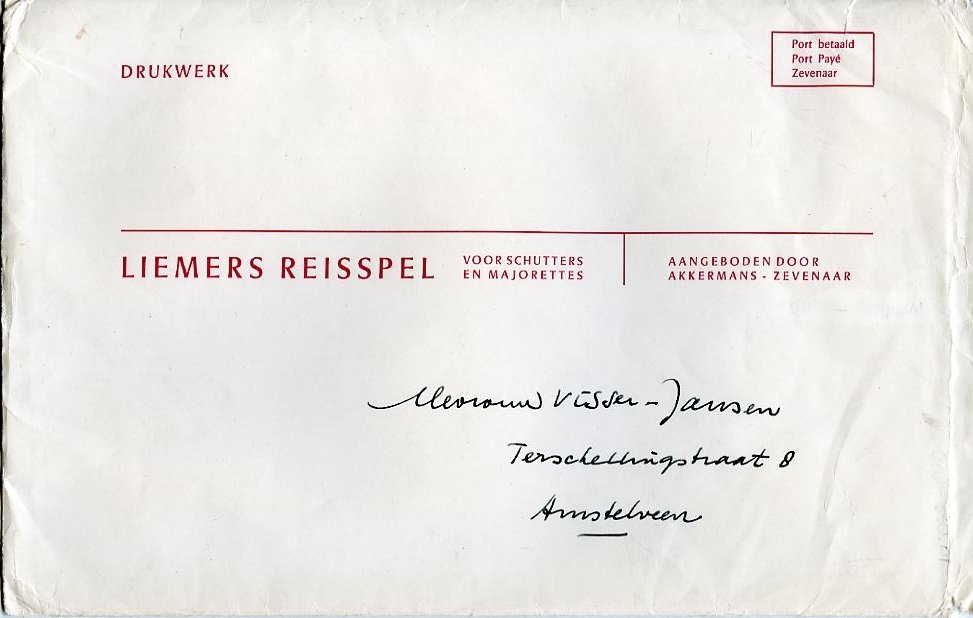 DRUKWERK
Port betaald
Port Payé
Zevenaar
LIEMERS REISSPEL
VOOR SCHUTTERS
EN MAJORETTES
AANGEBODEN DOOR
AKKERMANS - ZEVENAAR
Mevrouw Visser-Jansen
Terschellingstraat 8
Amstelveen